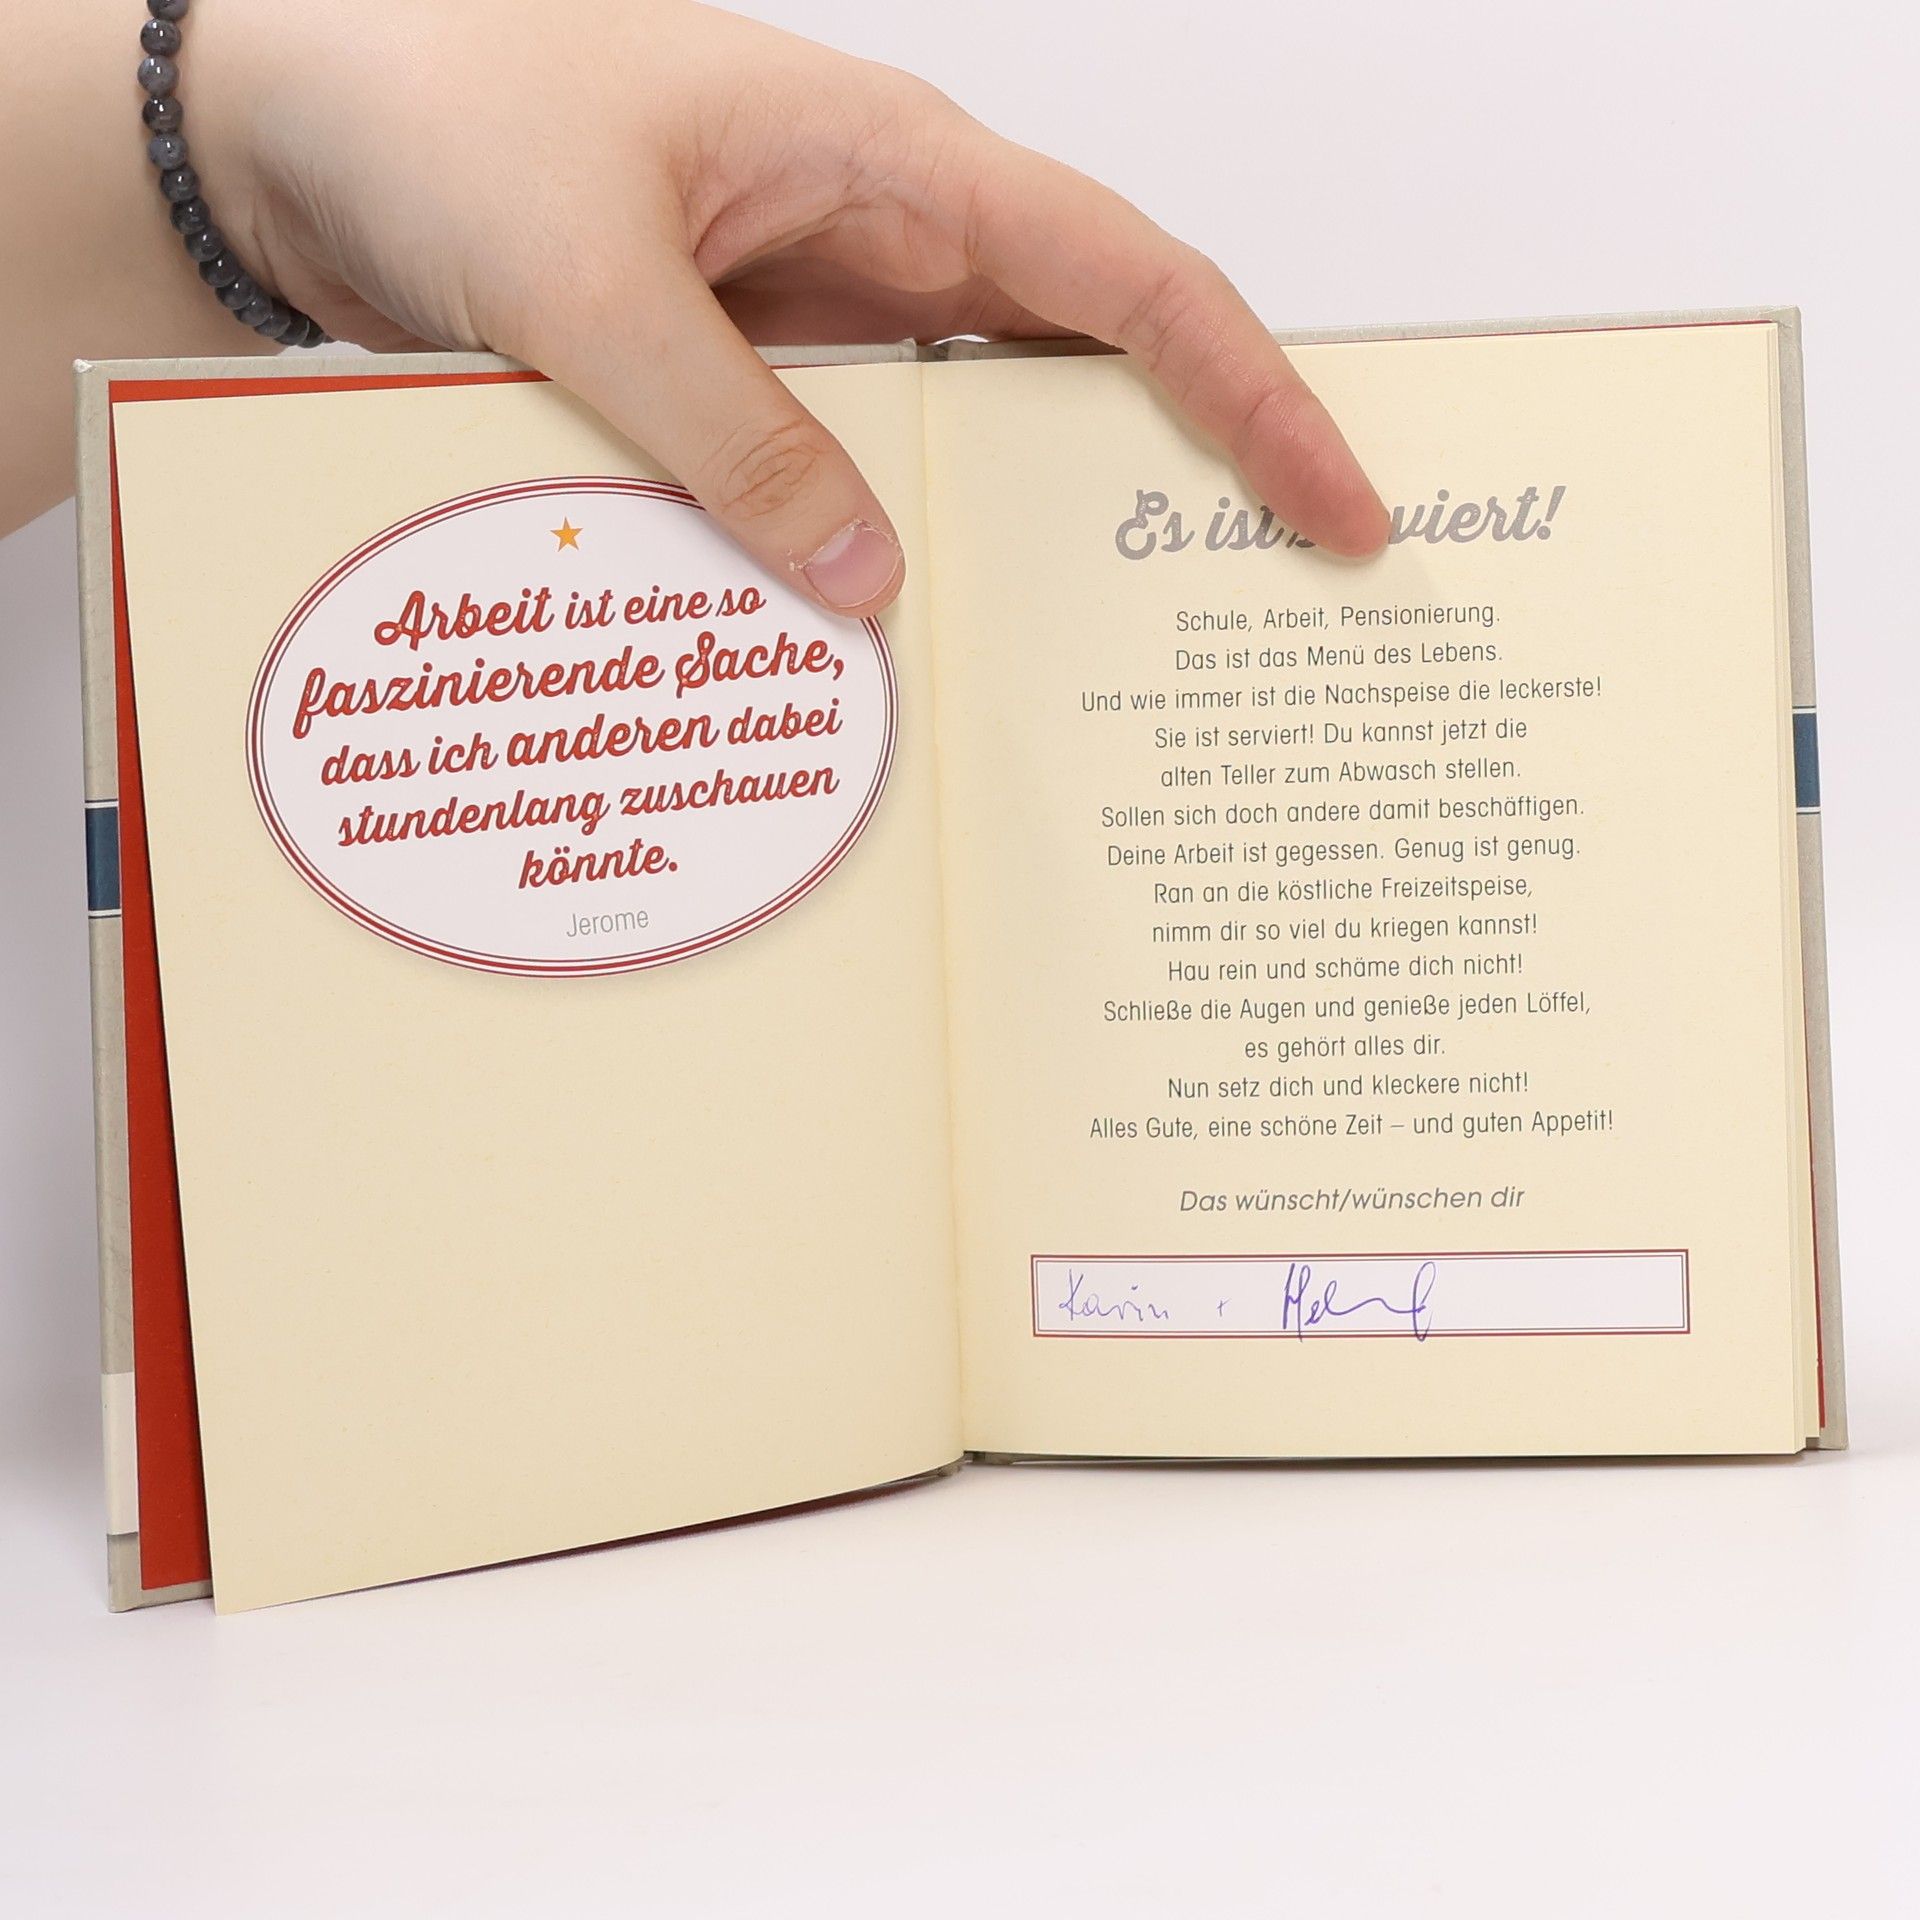 Arbeit ist eine so
faszinierende Sache,
dass ich anderen dabei
stundenlang zuschauen
könnte.
Jerome
Es ist viert!
Schule, Arbeit, Pensionierung.
Das ist das Menü des Lebens.
Und wie immer ist die Nachspeise die leckerste!
Sie ist serviert! Du kannst jetzt die
alten Teller zum Abwasch stellen.
Sollen sich doch andere damit beschäftigen.
Deine Arbeit ist gegessen. Genug ist genug.
Ran an die köstliche Freizeitspeise,
nimm dir so viel du kriegen kannst!
Hau rein und schäme dich nicht!
Schließe die Augen und genieße jeden Löffel,
es gehört alles dir.
Nun setz dich und kleckere nicht!
Alles Gute, eine schöne Zeit – und guten Appetit!
Das wünscht/wünschen dir
Karin +